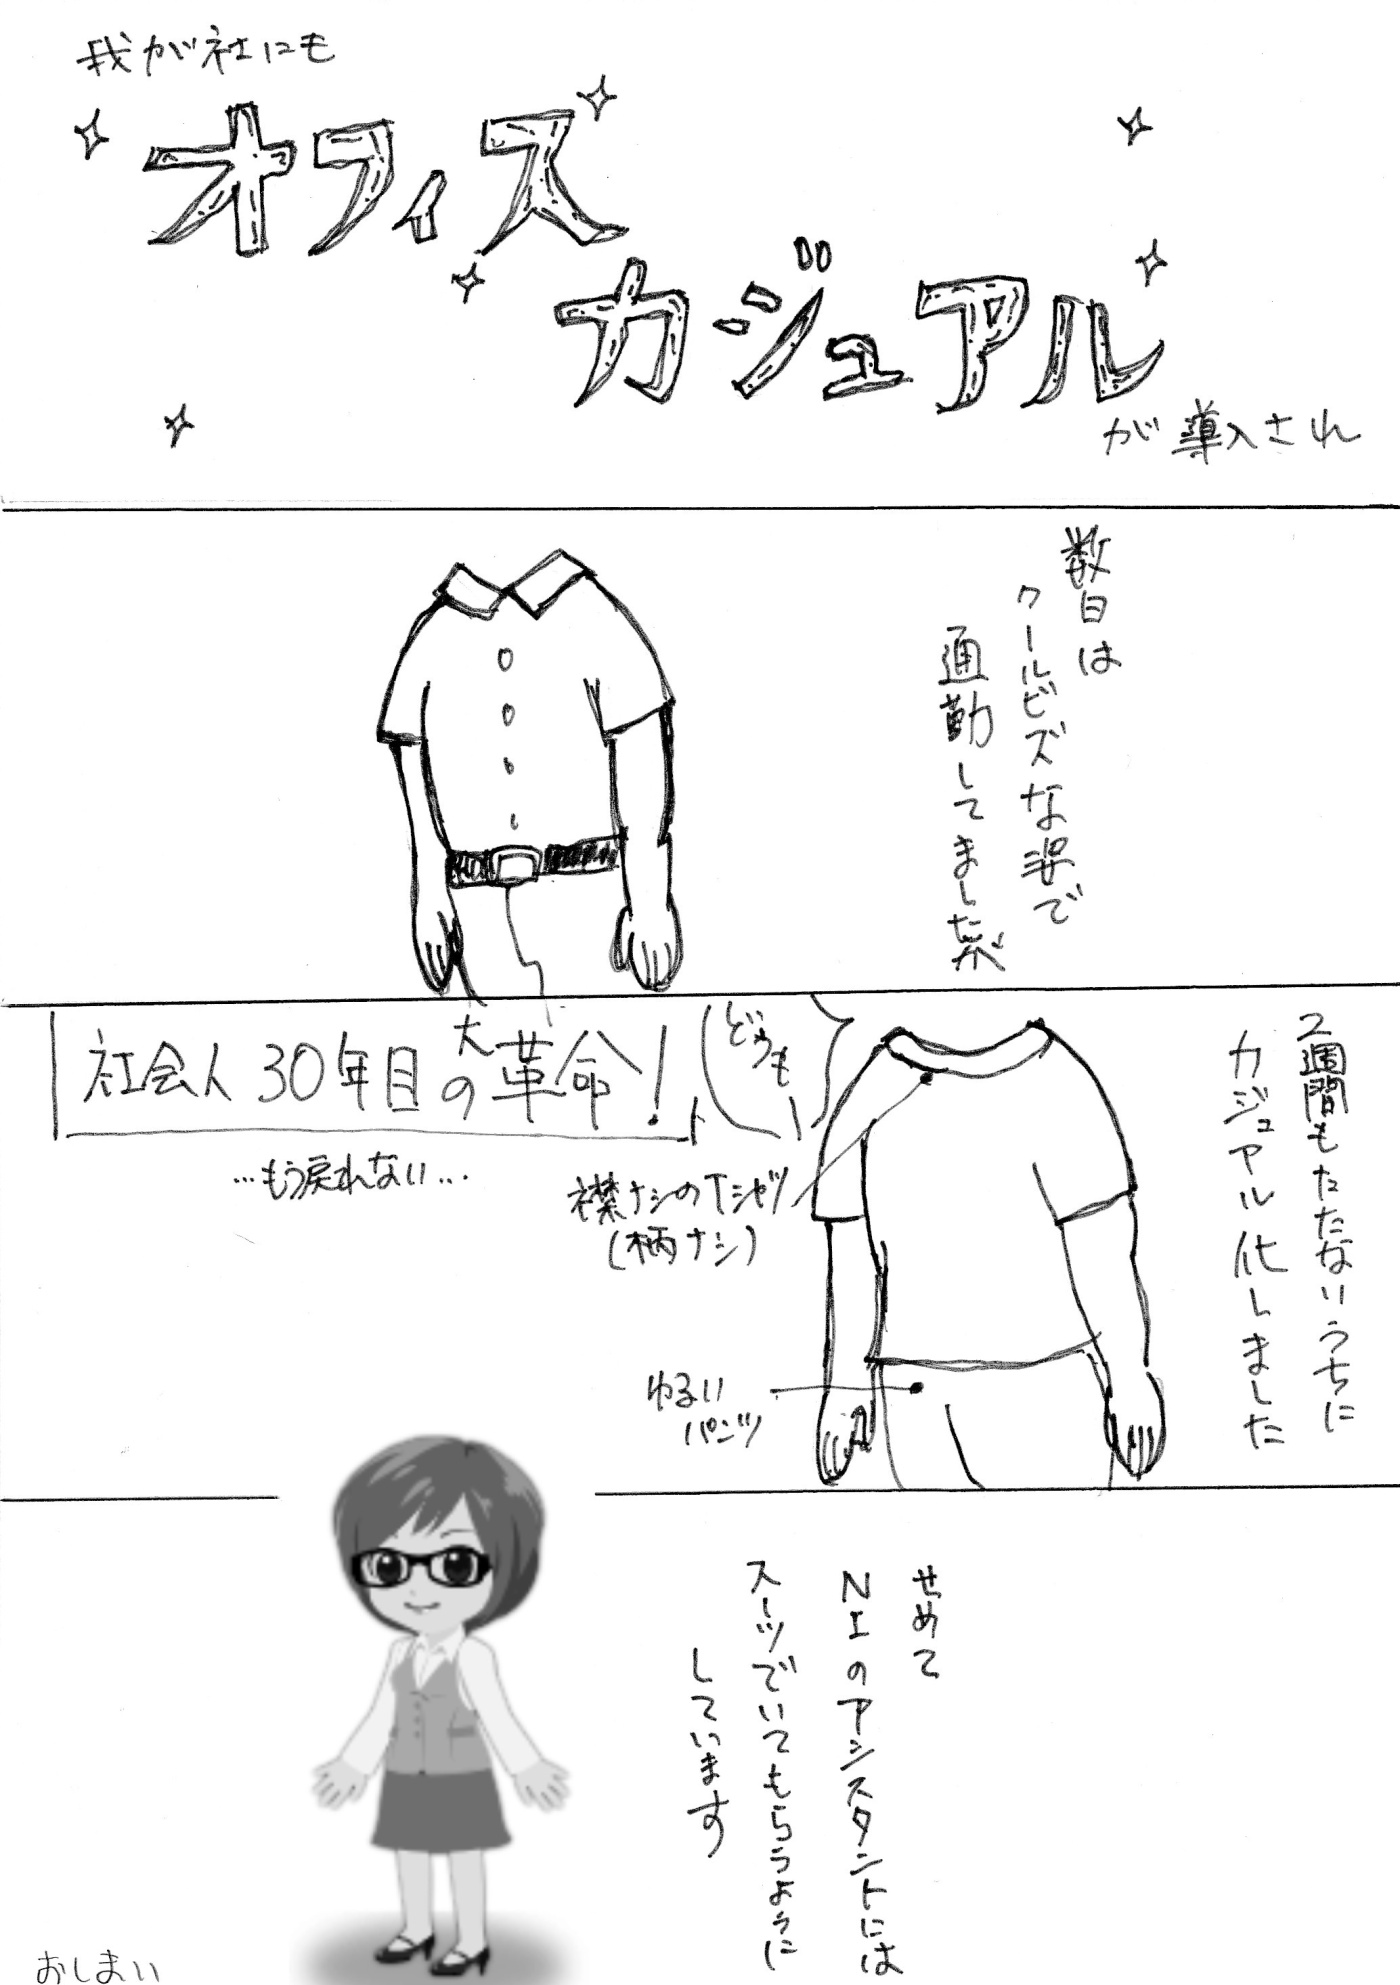 我が社にも
オフィス
カジュアル
が導入され
数日は
クールビズな姿で
通勤してましたが
2週間もたたないうちに
カジュアル化しました
どうもー
社会人30年目の大革命!
…もう戻れない…
襟ナシのTシャツ
(柄ナシ)
ゆるい
パンツ
せめて
NIのアシスタントには
スーツでいてもらうように
しています
おしまい